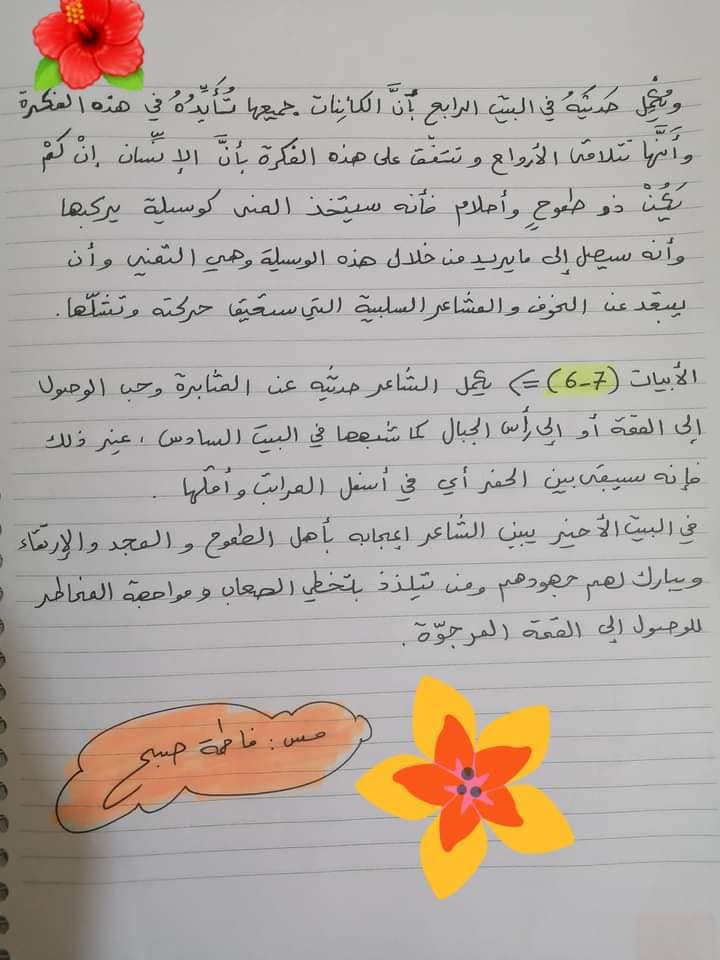 ويُكْمِل حَديثَهُ في البيت الرابع بأنَّ الكائنات جميعها تُؤَيِّدُهُ في هذه الفكرة
وأنَّها تتلاقى الأرواع وتتفق على هذه الفكرة بأنَّ الإنسان إنْ كمْ
يَكُنْ ذو طموحٍ وأحلام فأنه سيتخذ المنى كوسيلة يركبها
وأنه سيصل إلى مايريد من خلال هذه الوسيلة وهي التمني وأن
يبتعد عن الخوف والمشاعر السلبية التي ستعيق حركته وتشلّها.
الأبيات (6-7) => يكمل الشاعر حديثه عن المثابرة وحب الوصول
إلى القمة أو إلى رأس الجبال كما شبهها في البيت السادس ، غير ذلك
فإنه سيبقى بين الحفر أي في أسفل المراتب وأقلها .
في البيت الأخير يبين الشاعر إعجابه بأهل الطموح و المجد والإرتقاء
ويبارك لهم جهودهم ومن تيلذذ بتخطي الصعاب ومواجهة المخاطر
للوصول إلى القمة المرجوّة .
مس : فاطمة صبح